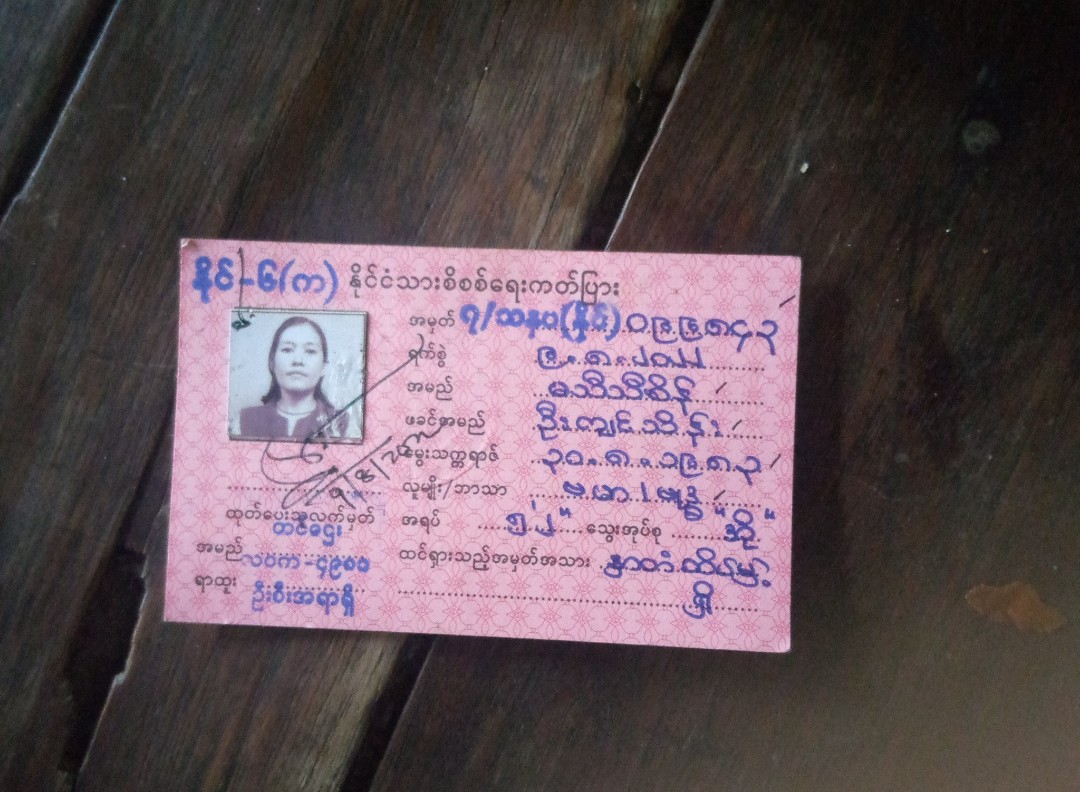 နိုင်-၆(က) နိုင်ငံသားစိစစ်ရေးကတ်ပြား
အမှတ် ၇/သနပ(နိုင်)၀၉၄၈၄၃
ရက်စွဲ ၉.၈.၂၀၂၂
အမည်
ဖခင်အမည် ဦးကျင်သိန်း
မွေးသက္ကရာဇ် ၃၀.၈.၁၉၈၃
လူမျိုး/ဘာသာ ဗမာ/ဗုဒ္ဓ
အရပ် ၅'၂" သွေးအုပ်စု "အို"
ထင်ရှားသည့်အမှတ်အသား နှာတံထိပ်မှဲ့
ရှိ
ထုတ်ပေးသူလက်မှတ်
အမည် တင်ဌေး
လဝက-၄၉၈၀
ရာထူး ဦးစီးအရာရှိ